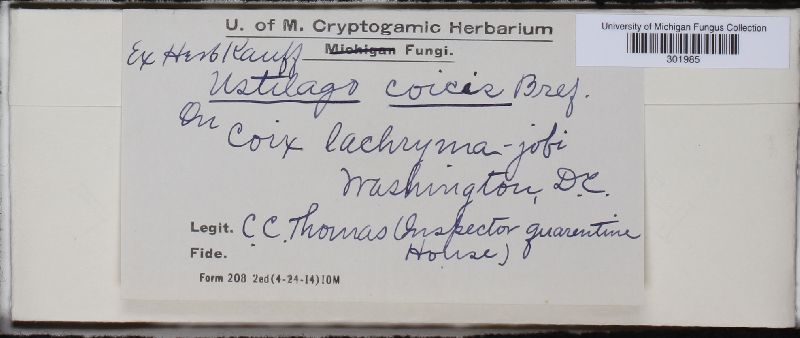 U. of M. Cryptogamic Herbarium
Michigan Fungi.
Ex Herb Kauff
Ustilago coicis Bref.
On Coix lachryma-jobi
Washington, D.C.
Legit. C.C. Thomas (Inspector quarentine
House)
Fide.
Form 208 2ed(4-24-14)10M
University of Michigan Fungus Collection
301985